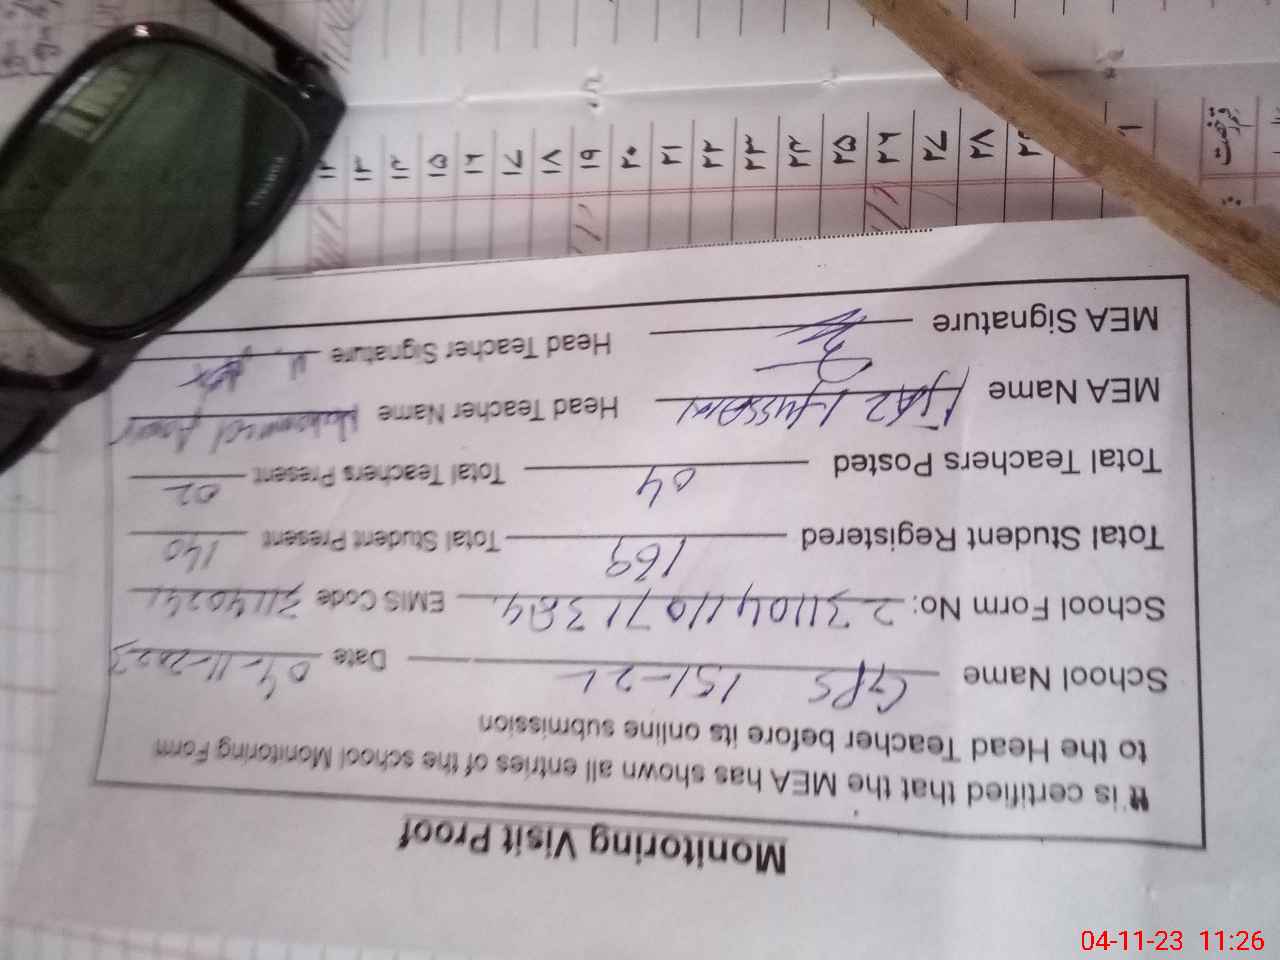 Monitoring Visit Proof
It is certified that the MEA has shown all entries of the school Monitoring Form
to the Head Teacher before its online submission
School Name GPS 151-2L Date 04-11-2023
School Form No: 23110411071384 EMIS Code 31140241
Total Student Registered 169 Total Student Present 140
Total Teachers Posted 04 Total Teachers Present 02
MEA Name IJAZ HUSSAIN Head Teacher Name Muhammad
MEA Signature Head Teacher Signature
۱۲ ۱۳ ۱۴ ۱۵ ۱۶ ۱۷ ۱۸ ۱۹ ۲۰ ۲۱ ۲۲ ۲۳ ۲۴ ۲۵ ۲۶ ۲۷ ۲۸ ۲۹
04-11-23 11:26